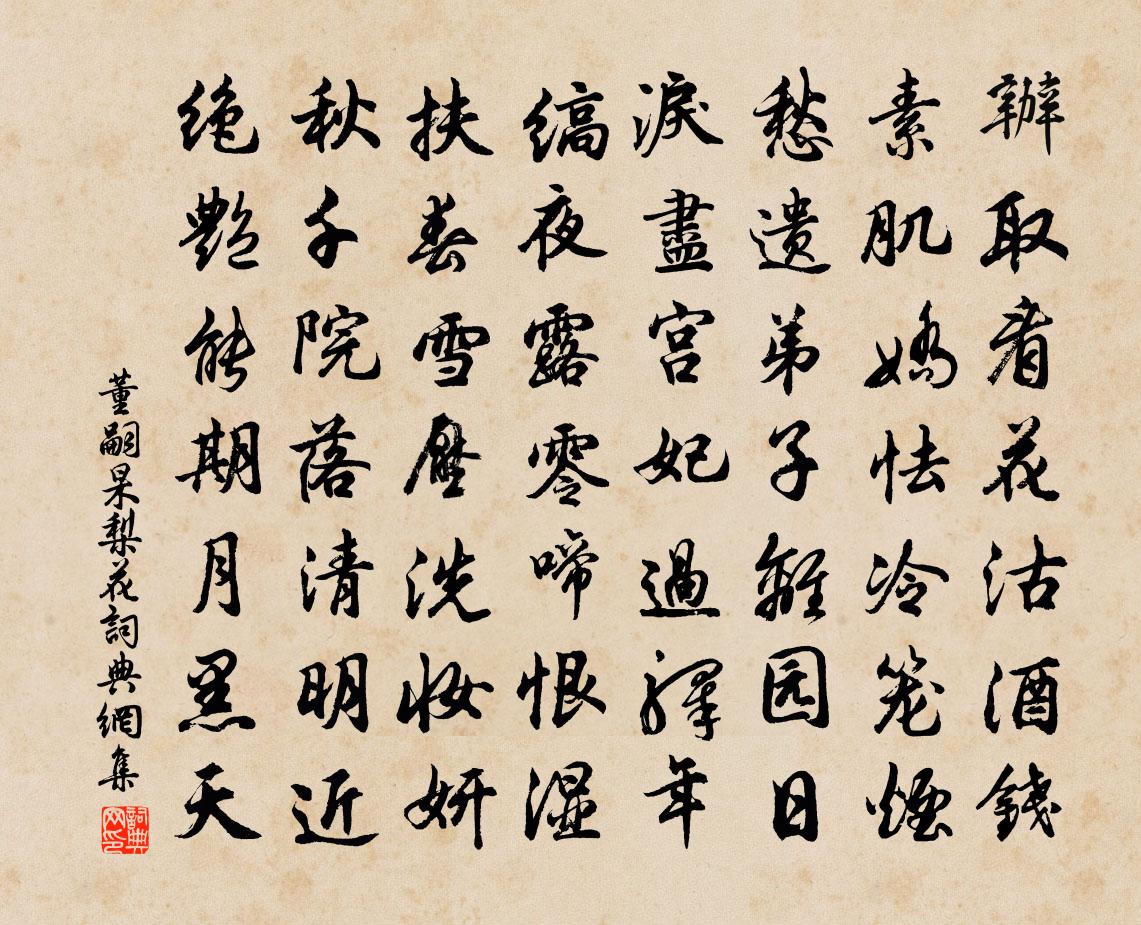 辦取看花沽酒錢
素肌嬌怯冷籠煙
愁遺弟子離园日
淚盡宮妃過驛年
縞夜露零啼恨濕
扶春雪壓洗妝妍
秋千院落清明近
绝艷能期月黑天
董嗣杲梨花詞典網集
詞典网印